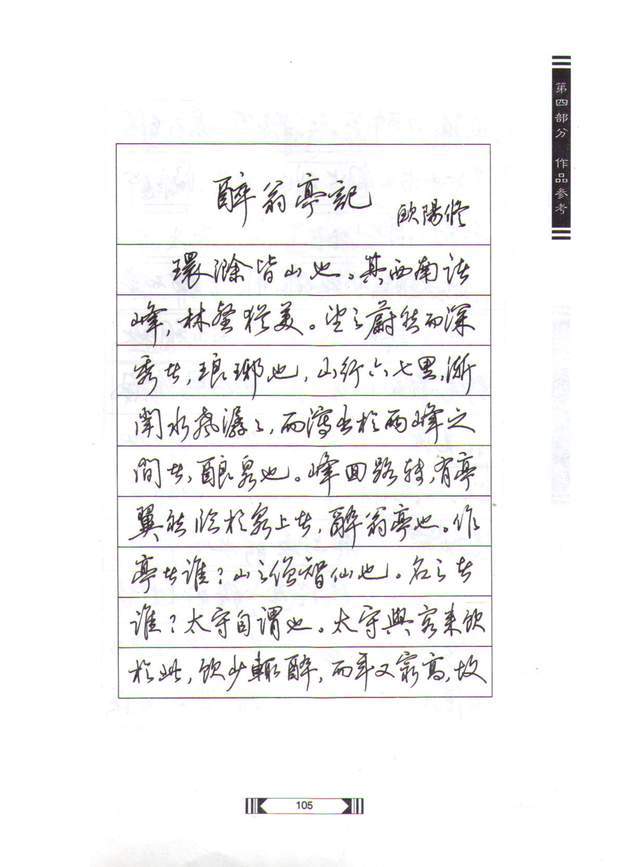 第四部分 作品参考
醉翁亭記
欧陽修
環滁皆山也。其西南諸
峰，林壑猶美。望之蔚然而深
秀者，琅琊也，山行六七里，漸
聞水聲潺潺，而瀉出於兩峰之
間者，釀泉也。峰回路轉，有亭
翼然臨於泉上者，醉翁亭也。作
亭者誰？山之僧智仙也。名之者
誰？太守自謂也。太守與客来飲
於此，飲少輒醉，而年又最高，故
105